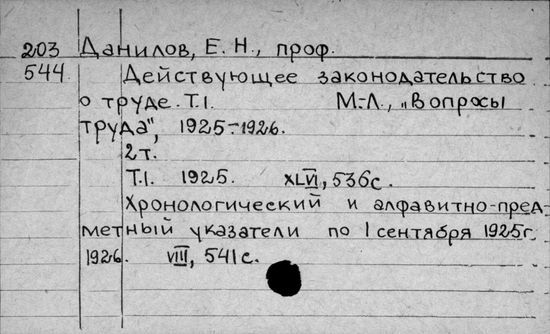 203 Данилов, Е. Н., проф.
544 Действующее законодательство
о труде. Т.I. М.-Л., „Вопросы
труда", 1925-1926.
2т.
Т.I. 1925. XLVI, 536с.
Хронологический и алфавитно-пред-
метный указатели по 1 сентября 1925г.
1926. VIII, 541с.